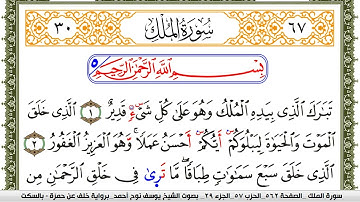 ٣٠ سُورَةُ المُلْكِ ٦٧
بِسْمِ اللَّهِ الرَّحْمَٰنِ الرَّحِيمِ ٥
تَبَارَكَ الَّذِي بِيَدِهِ الْمُلْكُ وَهُوَ عَلَىٰ كُلِّ شَيْءٍ قَدِيرٌ ١ الَّذِي خَلَقَ
الْمَوْتَ وَالْحَيَوٰةَ لِيَبْلُوَكُمْ أَيُّكُمْ أَحْسَنُ عَمَلًا وَهُوَ الْعَزِيزُ الْغَفُورُ ٢
الَّذِي خَلَقَ سَبْعَ سَمَٰوَٰتٍ طِبَاقًا مَّا تَرَىٰ فِي خَلْقِ الرَّحْمَٰنِ مِن
سورة الملك _الصفحة ٥٦٢_الحزب ٥٧_الجزء ٢٩_ بصوت الشيخ يوسف نوح أحمد _برواية خلف عن حمزة - بالسكت